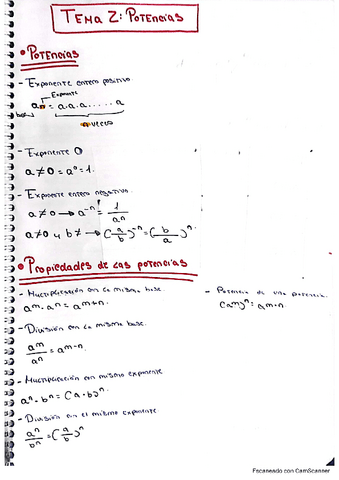 TEMA 2: POTENCIAS
• POTENCIAS
- Exponente entero positivo
Exponente
aⁿ = a.a.a.....a
base
n veces
- Exponente 0
a≠0 = a⁰ = 1.
- Exponente entero negativo.
a≠0 → a⁻ⁿ = 1/aⁿ
a≠0 y b≠ → (a/b)⁻ⁿ = (b/a)ⁿ.
• Propiedades de las potencias
- Multiplicación con la misma base.
aᵐ · aⁿ = aᵐ⁺ⁿ.
- División con la misma base.
aᵐ/aⁿ = aᵐ⁻ⁿ.
- Multiplicación con mismo exponente
aⁿ · bⁿ = (a·b)ⁿ
- División con el mismo exponente
aⁿ/bⁿ = (a/b)ⁿ
- Potencia de una potencia.
(aᵐ)ⁿ = aᵐ·ⁿ
Escaneado con CamScanner